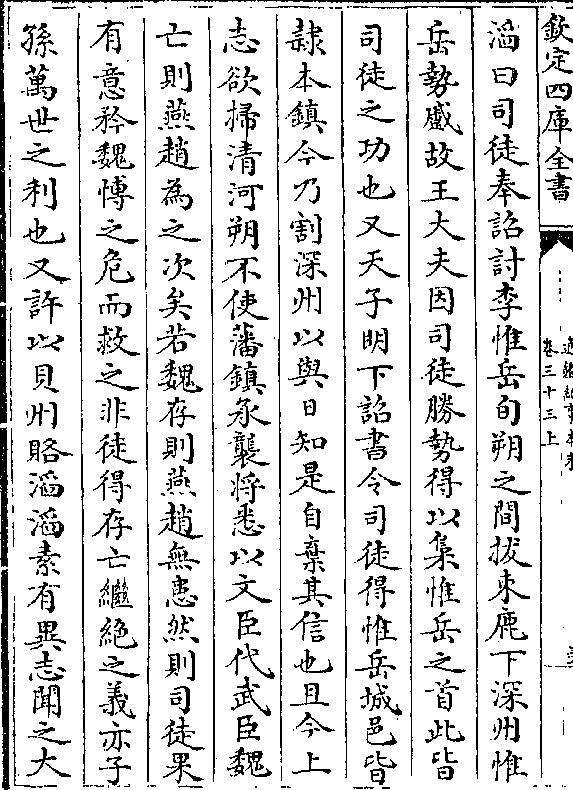 欽定四庫全書
通鑑紀事本末
卷三十三上
滔曰司徒奉詔討李惟岳旬朔之間拔束鹿下深州惟
岳勢蹙故王大夫因司徒勝勢得以梟惟岳之首此皆
司徒之功也又天子明下詔書令司徒得惟岳城邑皆
隷本鎮今乃割深州以與日知是自棄其信也且今上
志欲掃清河朔不使藩鎮承襲將悉以文臣代武臣魏
亡則燕趙為之次矣若魏存則燕趙無患然則司徒果
有意矜魏博之危而救之非徒得存亡繼絶之義亦子
孫萬世之利也又許以貝州賂滔滔素有異志聞之大